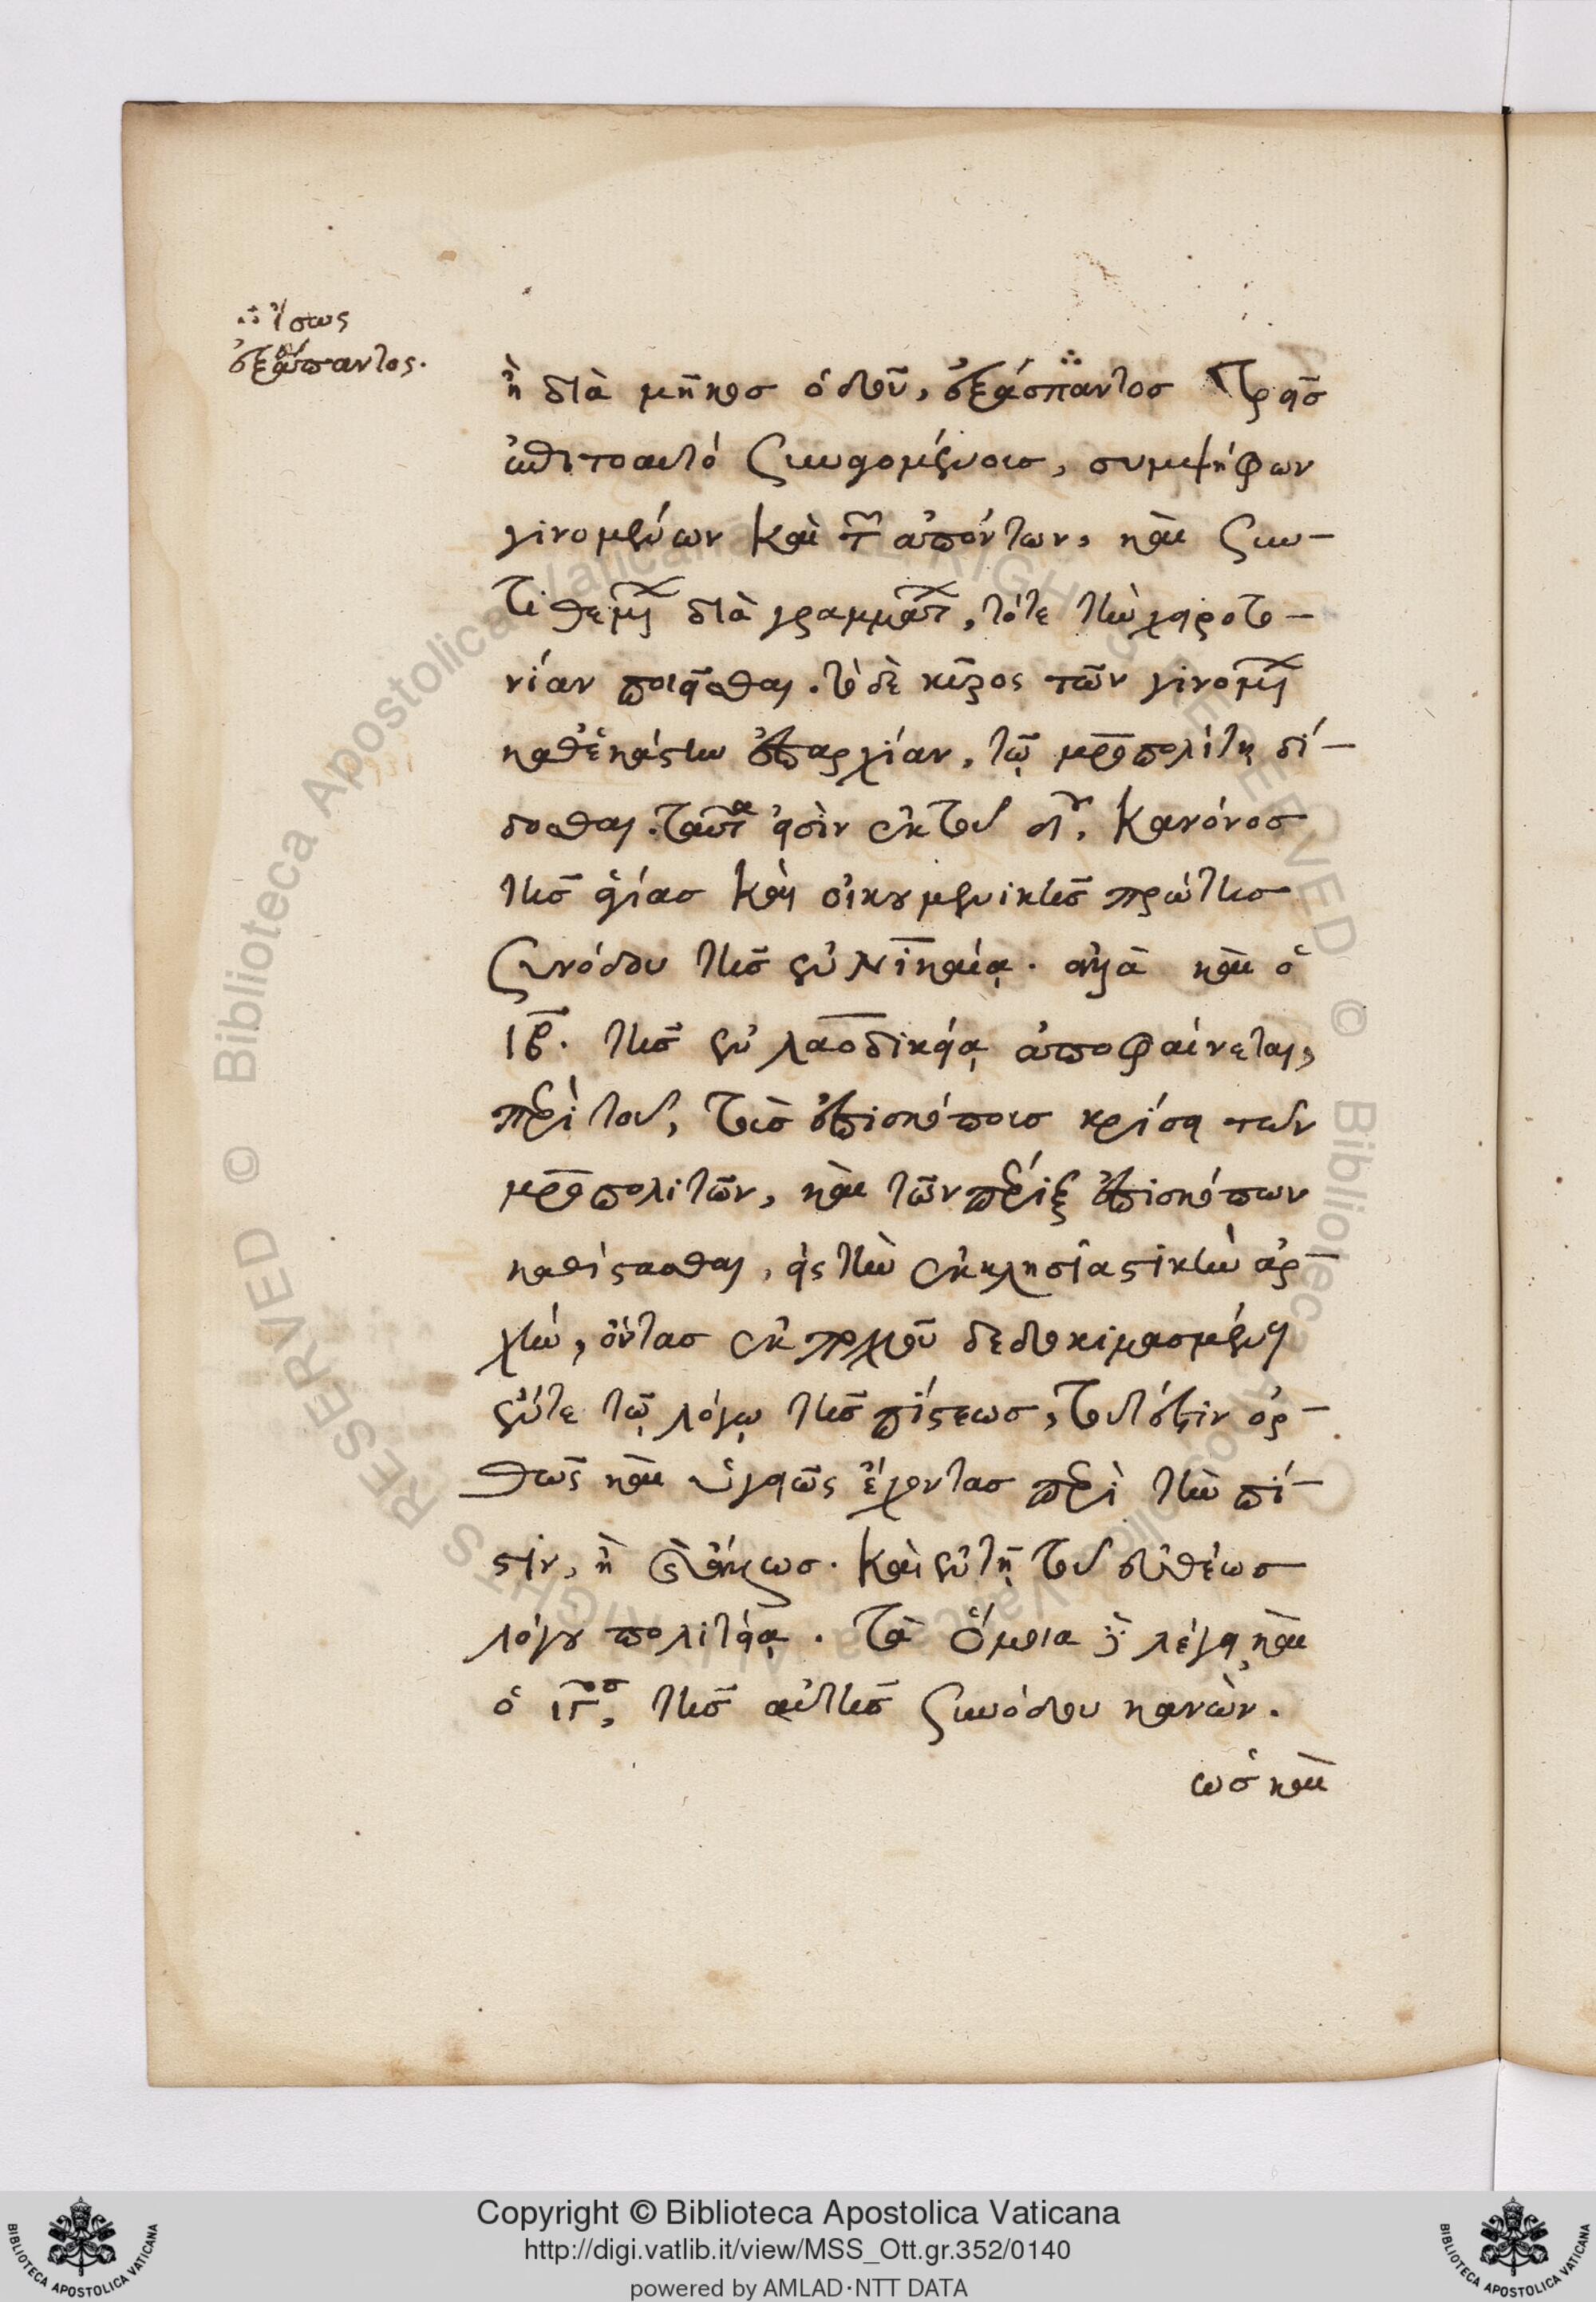 ∴ ἴσως
ἐξάπαντος.
ἢ διὰ μῆκος ὁδοῦ, ἐξάσπαντος τρεῖς
ἐπιτοαυτό συναγομένοις, συμψήφων
γινομένων καὶ τῶν ἀπόντων, καὶ συν-
τιθεμένων διὰ γραμμάτων, τότε τὴν χειροτο-
νίαν ποιεῖσθαι. τὸ δὲ κῦρος τῶν γινομένων
καθ' ἑκάστην ἐπαρχίαν, τῷ μητροπολίτῃ δί-
δοσθαι. ταῦτα εἰσὶν ἐκ τοῦ δ΄ου, κανόνος
τῆς ἁγίας καὶ οἰκουμενικῆς πρώτης
συνόδου τῆς ἐν Νικαίᾳ. ἀλλὰ καὶ ὁ
ιβ. τῆς ἐν λαοδικείᾳ ἀποφαίνεται,
περὶ τοῦ, τοὺς ἐπισκόποις κρίσει τῶν
μητροπολιτῶν, καὶ τῶν πέριξ ἐπισκόπων
καθίστασθαι, εἰς τὴν ἐκκλησιαστικὴν ἀρ-
χὴν, ὄντας ἐκ πολλοῦ δεδοκιμασμένους
ἔντε τῷ λόγῳ τῆς πίστεως, τουτέστιν ὀρ-
θῶς καὶ ὑγιῶς ἔχοντας περὶ τὴν πί-
στιν, ἢ καὶ ἄλλως. καὶ ἐν τῇ τοῦ εὐθέως
λόγου πολιτείᾳ. τὰ ὅμοια δὲ λέγει καὶ
ὁ ιγος, τῆς αὐτῆς συνόδου κανὼν.
ὡς καὶ
Copyright © Biblioteca Apostolica Vaticana
http://digi.vatlib.it/view/MSS_Ott.gr.352/0140
powered by AMLAD·NTT DATA